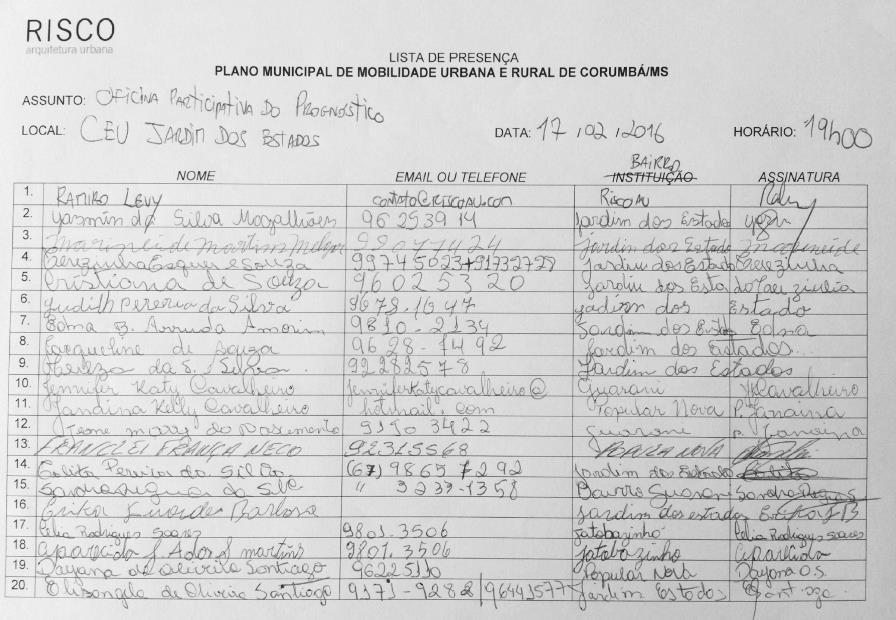 RISCO
arquitetura urbana
LISTA DE PRESENÇA
PLANO MUNICIPAL DE MOBILIDADE URBANA E RURAL DE CORUMBÁ/MS
ASSUNTO: OFICINA PARTICIPATIVA DO PROGNÓSTICO
LOCAL: CEU JARDIM DOS ESTADOS DATA: 17/02/2016 HORÁRIO: 19h00
BAIRRO
NOME EMAIL OU TELEFONE INSTITUIÇÃO ASSINATURA
1. RAMIRO LEVY contato@riscoau.com RiscoAU
2. Yasmin da Silva Magalhães 96 253914 Jardim dos Estado
3. Marineide Martins 99077424 jardim dos Estado Marineide
4. Terezinha Esquer e Souza 99745023 + 91732729 Jardim dos Estado Terezinha
5. Cristiana de Souza 96025320 Jardim dos Estado
6. Judith Pereira da Silva 9673.1647 jadim dos Estado
7. Edna B. Arruda Amorim 9810-2134 Jardim dos Esta Edna
8. Jacqueline de Souza 9628-1492 Jardim dos Estados
9. Thereza da S. Silva 92282578 Jardim dos Estados
10. Jennifer Katy Cavalheiro jenniferkatycavalheiro@ Guarani JKCavalheiro
11. Jandina Kelly Cavalheiro hotmail.com Popular Nova P. Janaina
12. mary do nascimento 9190 3422 Guarani P. Janaina
13. FRANCLEI FRANÇA NECO 92315568 POPULAR NOVA
14. Pereira da Silva (67) 9865 7292 Jardim do Estado
15. da Silva " 3233-1358 Bairro Guarani Sandra
16. Erika Barbosa Jardim dos estados
17. Celia Rodrigues Soares 9801.3506 Jatobazinho Celia Rodrigues Soares
18. Aparecida martins 9801.3506 Jatobazinho Aparecida
19. Dayana de Oliveira Santiago 96225110 Popular Nova Dayana O.S.
20. Elisangela de Oliveira Santiago 9171-9282 / 96441577 Jardim Estados